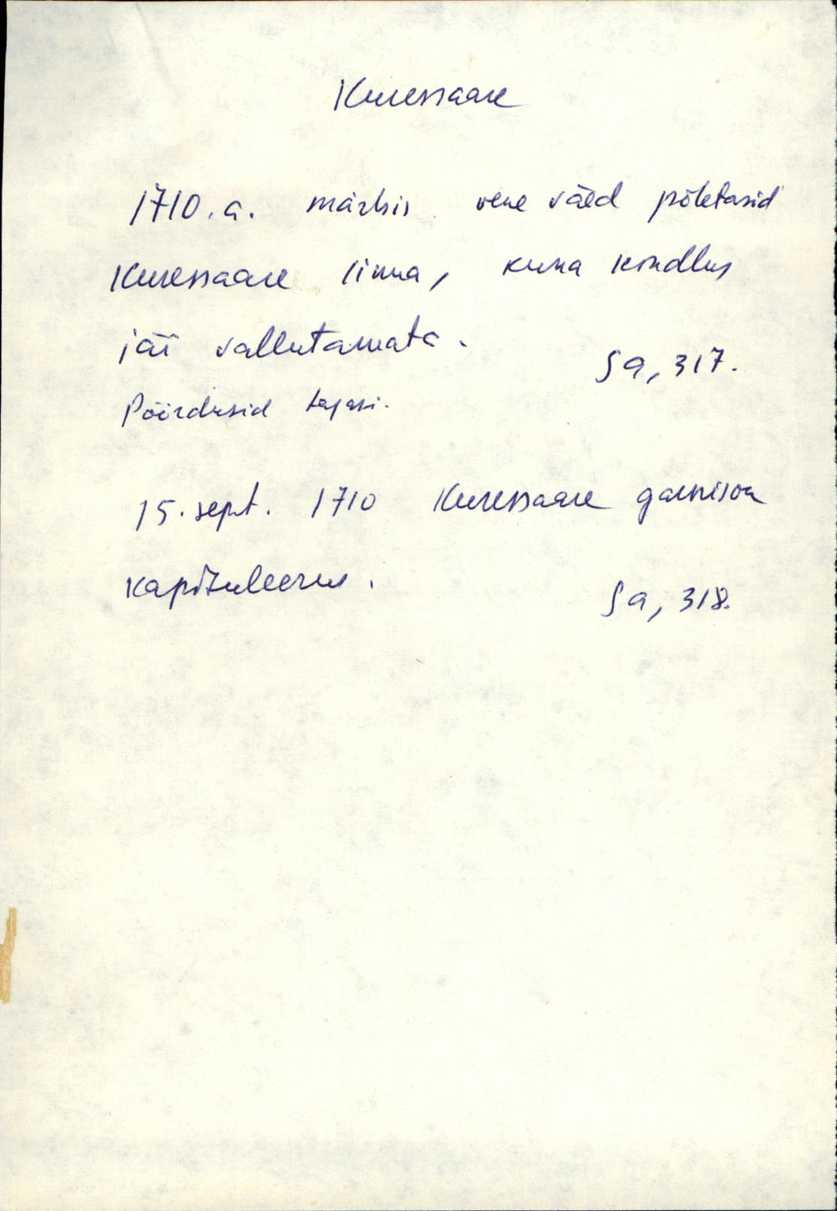 Kuressaare
1710.a. märtsis vene väed põletasid
Kuressaare linna, kuna kindlus
jäi vallutamata.
Sa, 317.
Pöördusid tagasi.
15. sept. 1710 Kuressaare garnison
kapituleerus.
Sa, 318.